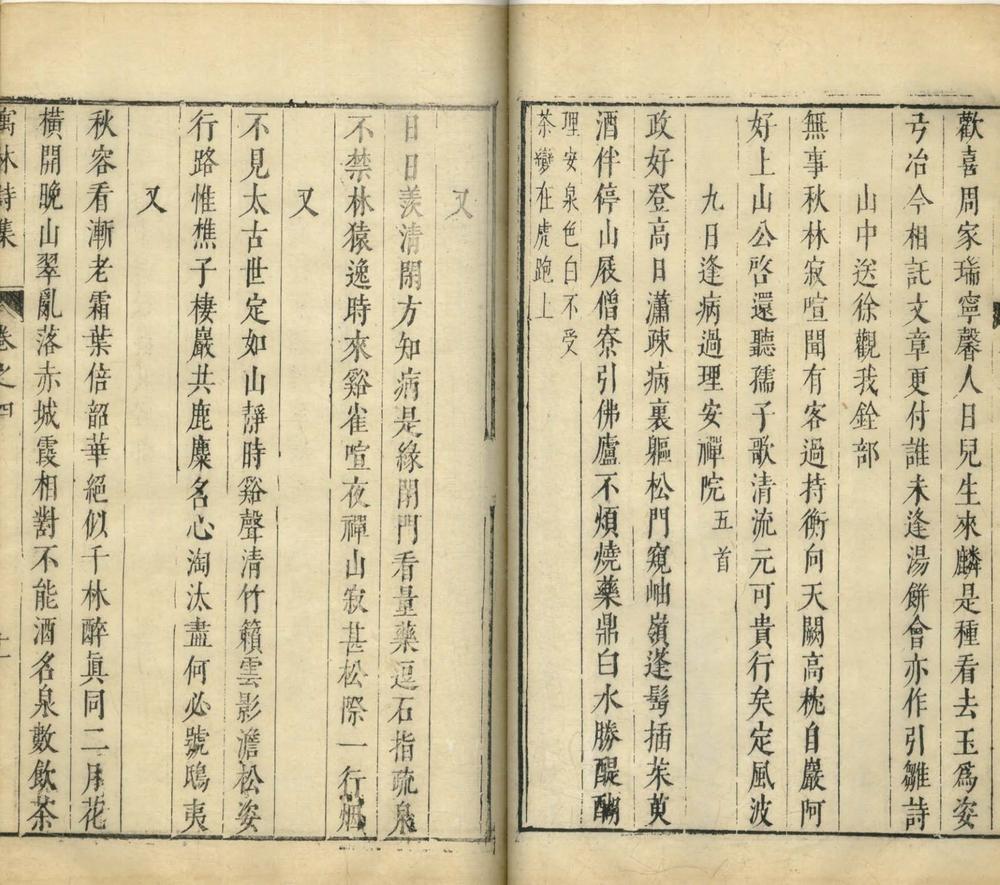 歡喜周家瑞寧馨人日兒生來麟是種看去玉爲姿
弓冶今相託文章更付誰未逢湯餅會亦作引雛詩
山中送徐觀我銓部
無事秋林寂喧聞有客過持衡向天闕高枕自巖阿
好上山公啓還聽孺子歌清流元可貴行矣定風波
九日逢病過理安禪院五首
政好登高日瀟疎病裏軀松門窺岫嶺蓬鬂插茱萸
酒伴停山屐僧寮引佛廬不煩燒藥鼎白水勝醍醐
理安泉色白不受
茶變在虎跑上
又
日日羨清閒方知病是緣閉門看量藥逗石指疏泉
不禁林猿逸時來谿雀喧夜禪山寂甚松際一行烟
又
不見太古世定如山靜時谿聲清竹籟雲影澹松姿
行路惟樵子棲巖共鹿麋名心淘汰盡何必號鴟夷
又
秋容看漸老霜葉倍韶華絕似千林醉眞同二月花
橫開晚山翠亂落赤城霞相對不能酒名泉數飲茶
寓林詩集 卷之四 十一